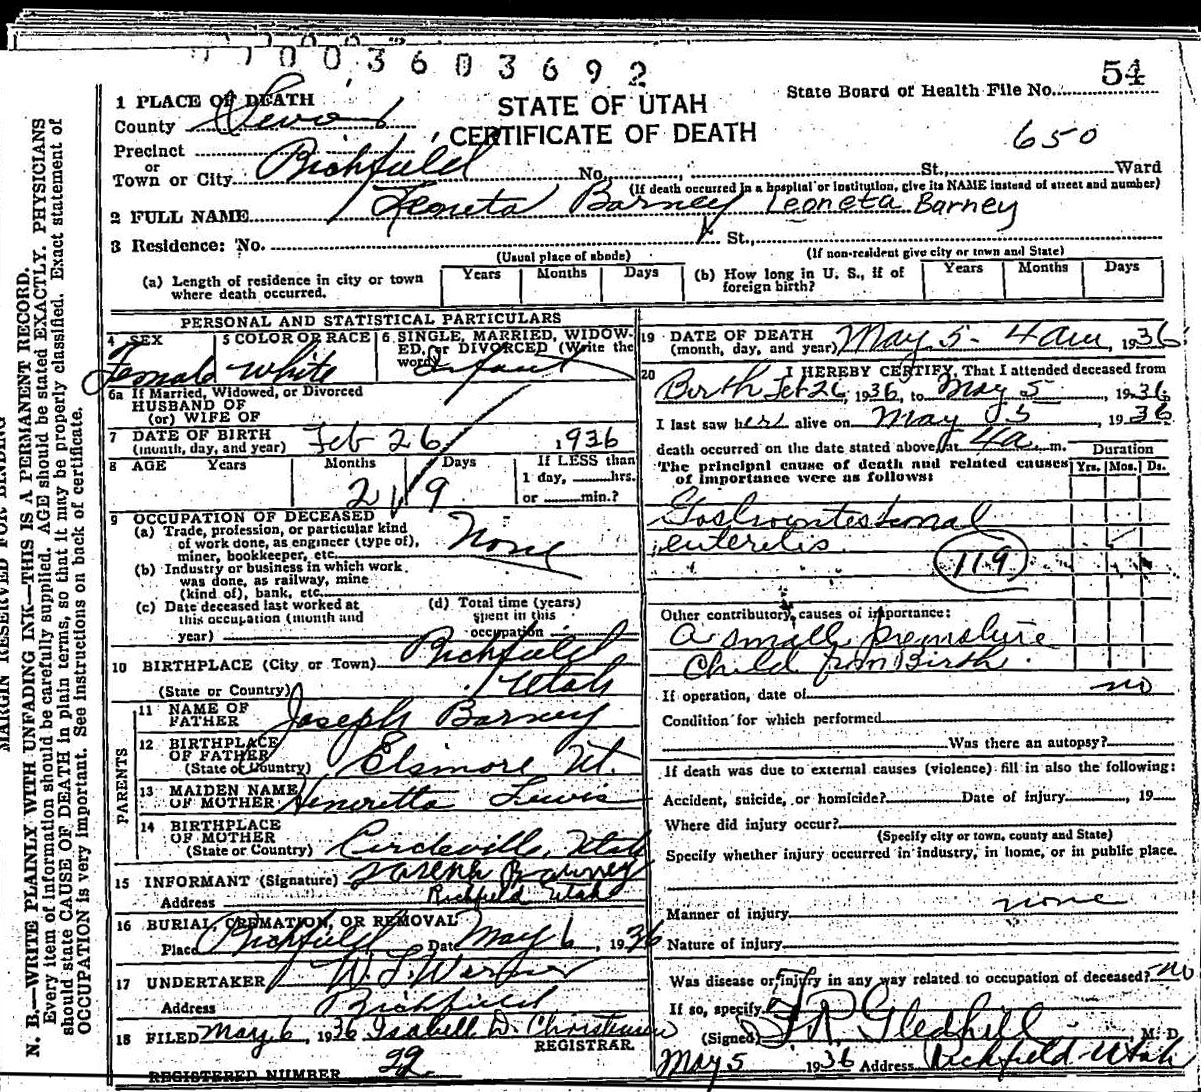 7700 3603692
54
State Board of Health File No.
STATE OF UTAH
CERTIFICATE OF DEATH
650
1 PLACE OF DEATH
County Sevier
Precinct
or
Town or City Richfield No. St., Ward
(If death occurred in a hospital or institution, give its NAME instead of street and number)
2 FULL NAME Leoneta Barney Leoneta Barney
3 Residence: No. St.,
(Usual place of abode) (If non-resident give city or town and State)
(a) Length of residence in city or town where death occurred. Years Months Days
(b) How long in U. S., if of foreign birth? Years Months Days
PERSONAL AND STATISTICAL PARTICULARS
4 SEX 5 COLOR OR RACE 6 SINGLE, MARRIED, WIDOW-
ED, or DIVORCED (Write the
word)
Female White Infant
6a If Married, Widowed, or Divorced
HUSBAND OF
(or) WIFE OF
7 DATE OF BIRTH
(month, day, and year) Feb 26, 1936
8 AGE Years Months Days If LESS than
1 day, hrs.
or min.?
2 9
9 OCCUPATION OF DECEASED
(a) Trade, profession, or particular kind
of work done, as engineer (type of),
miner, bookkeeper, etc. None
(b) Industry or business in which work
was done, as railway, mine
(kind of), bank, etc.
(c) Date deceased last worked at
this occupation (month and
year)
(d) Total time (years)
spent in this
occupation
10 BIRTHPLACE (City or Town) Richfield
(State or Country) Utah
PARENTS
11 NAME OF
FATHER Joseph Barney
12 BIRTHPLACE
OF FATHER
(State or Country) Elsinore Ut.
13 MAIDEN NAME
OF MOTHER Henretta Lewis
14 BIRTHPLACE
OF MOTHER
(State or Country) Circleville, Utah
15 INFORMANT (Signature) Joseph Barney
Address Richfield Utah
16 BURIAL, CREMATION, OR REMOVAL
Place Richfield Date May 6, 1936
17 UNDERTAKER
Address Richfield
18 FILED May 6, 1936 Isabell D. Christensen
REGISTRAR.
REGISTERED NUMBER 22
19 DATE OF DEATH
(month, day, and year) May 5 - 4 am, 1936
20 I HEREBY CERTIFY, That I attended deceased from
Birth Feb 26, 1936, to May 5, 1936
I last saw her alive on May 5, 1936
death occurred on the date stated above, at 4 a.m. Duration
The principal cause of death and related causes
of importance were as follows: Yrs. Mos. Ds.
Gastrointestional
enteretis.
119
Other contributory causes of importance:
A small premature
Child from Birth.
If operation, date of no
Condition for which performed
Was there an autopsy?
If death was due to external causes (violence) fill in also the following:
Accident, suicide, or homicide? Date of injury , 19
Where did injury occur?
(Specify city or town, county and State)
Specify whether injury occurred in industry, in home, or in public place.
Manner of injury none
Nature of injury
Was disease or injury in any way related to occupation of deceased? no
If so, specify
(Signed) Gledhill M. D.
May 5 1936 Address Richfield Utah
MARGIN RESERVED FOR BINDING
N. B.—WRITE PLAINLY WITH UNFADING INK—THIS IS A PERMANENT RECORD.
Every item of information should be carefully supplied. AGE should be stated EXACTLY. PHYSICIANS
should state CAUSE OF DEATH in plain terms, so that it may be properly classified. Exact statement of
OCCUPATION is very important. See instructions on back of certificate.